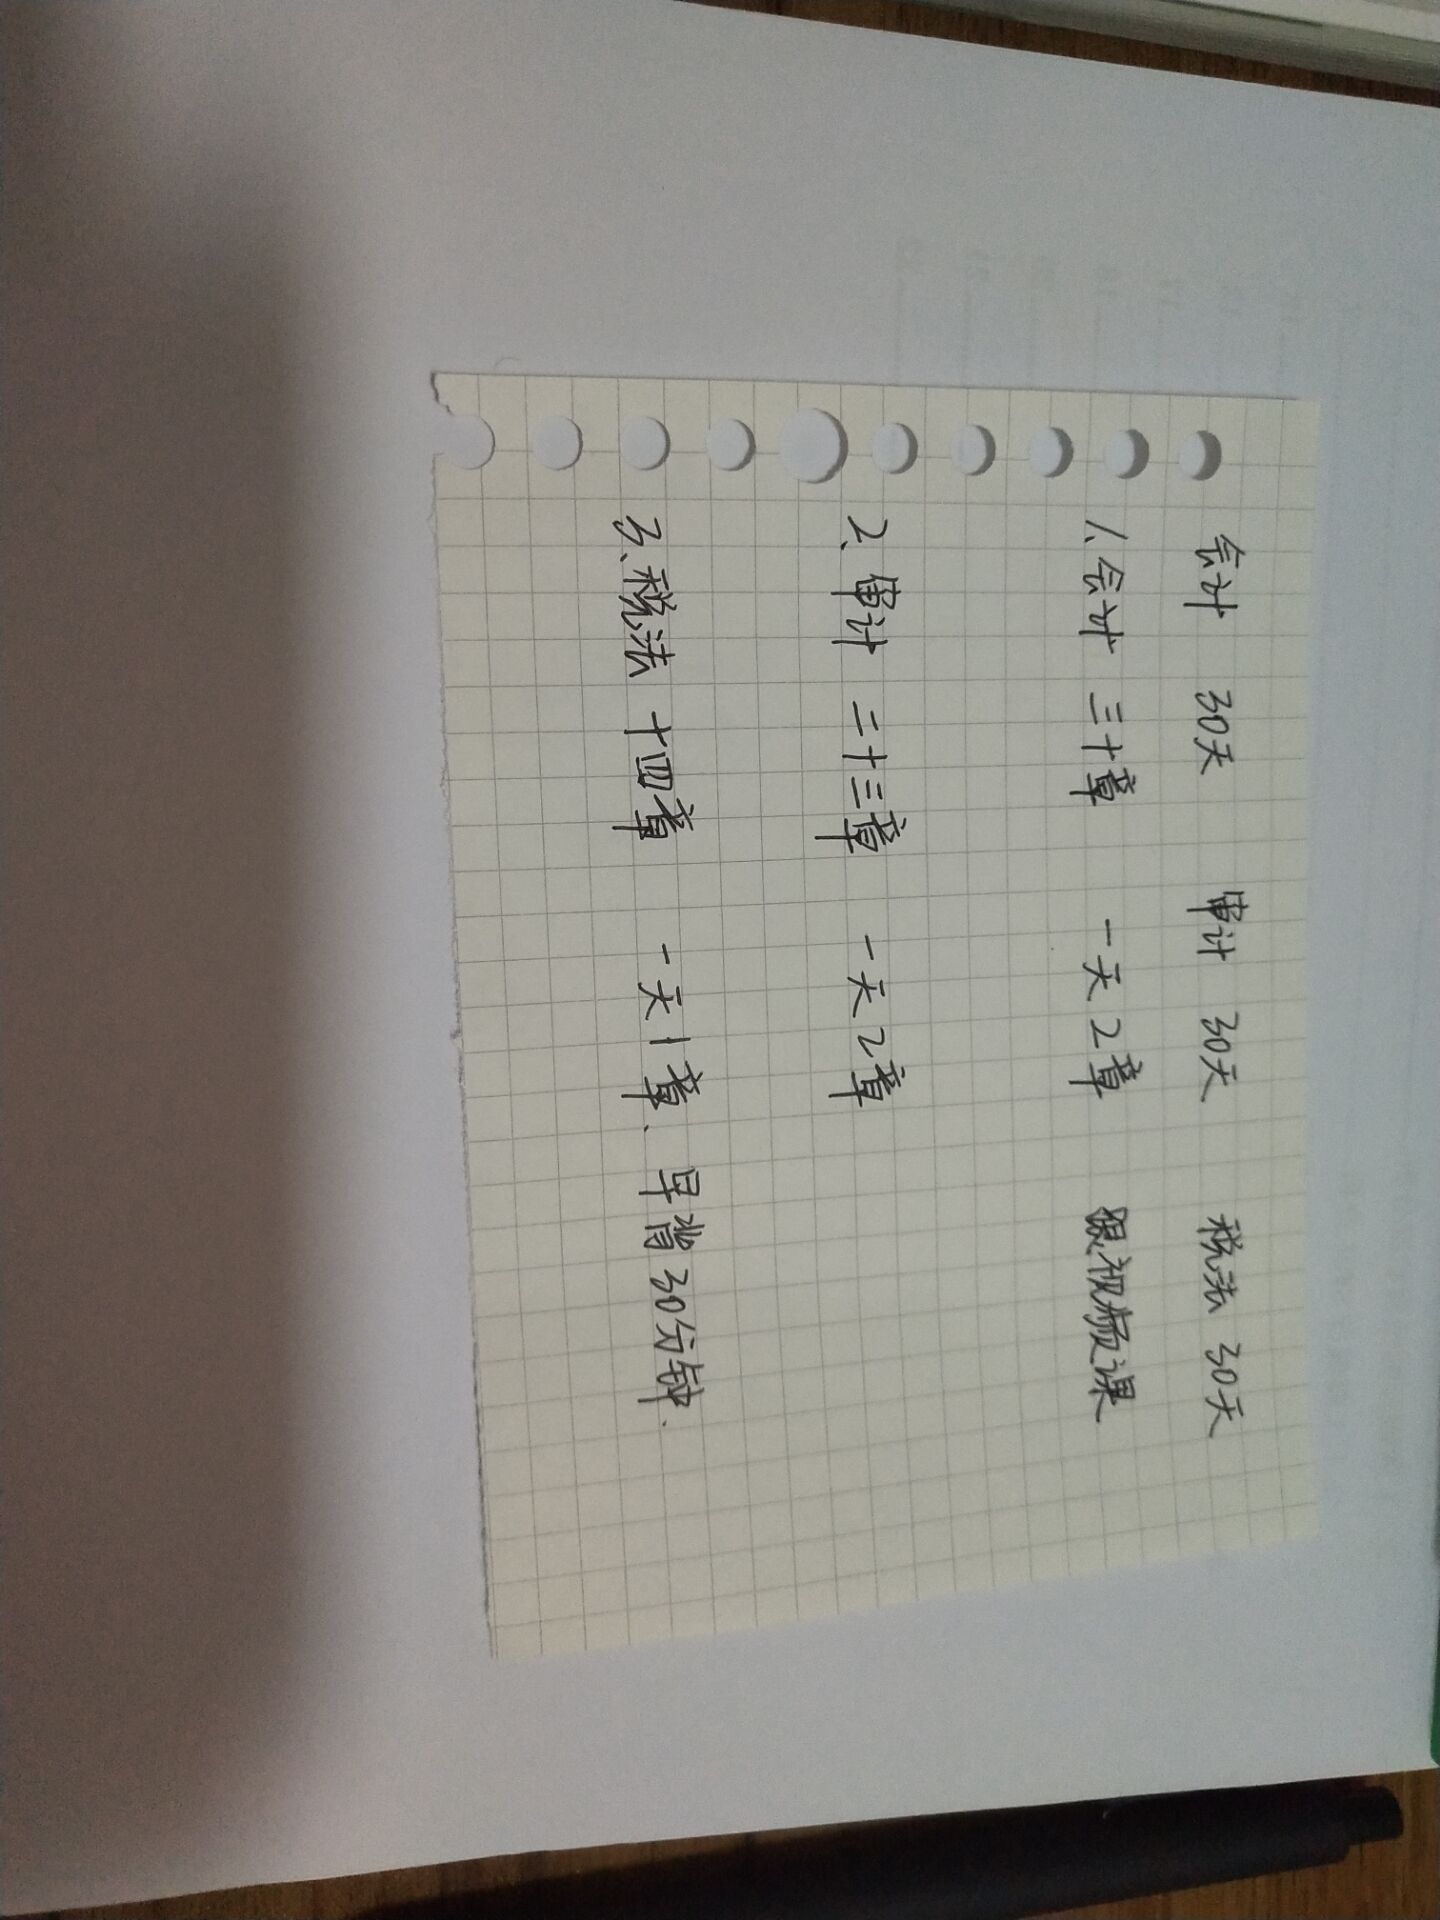 会计 30天 审计 30天 税法 30天
1、会计 三十章 一天2章 跟视频课
2、审计 二十三章 一天2章
3、税法 十四章 一天1章、早背30分钟.